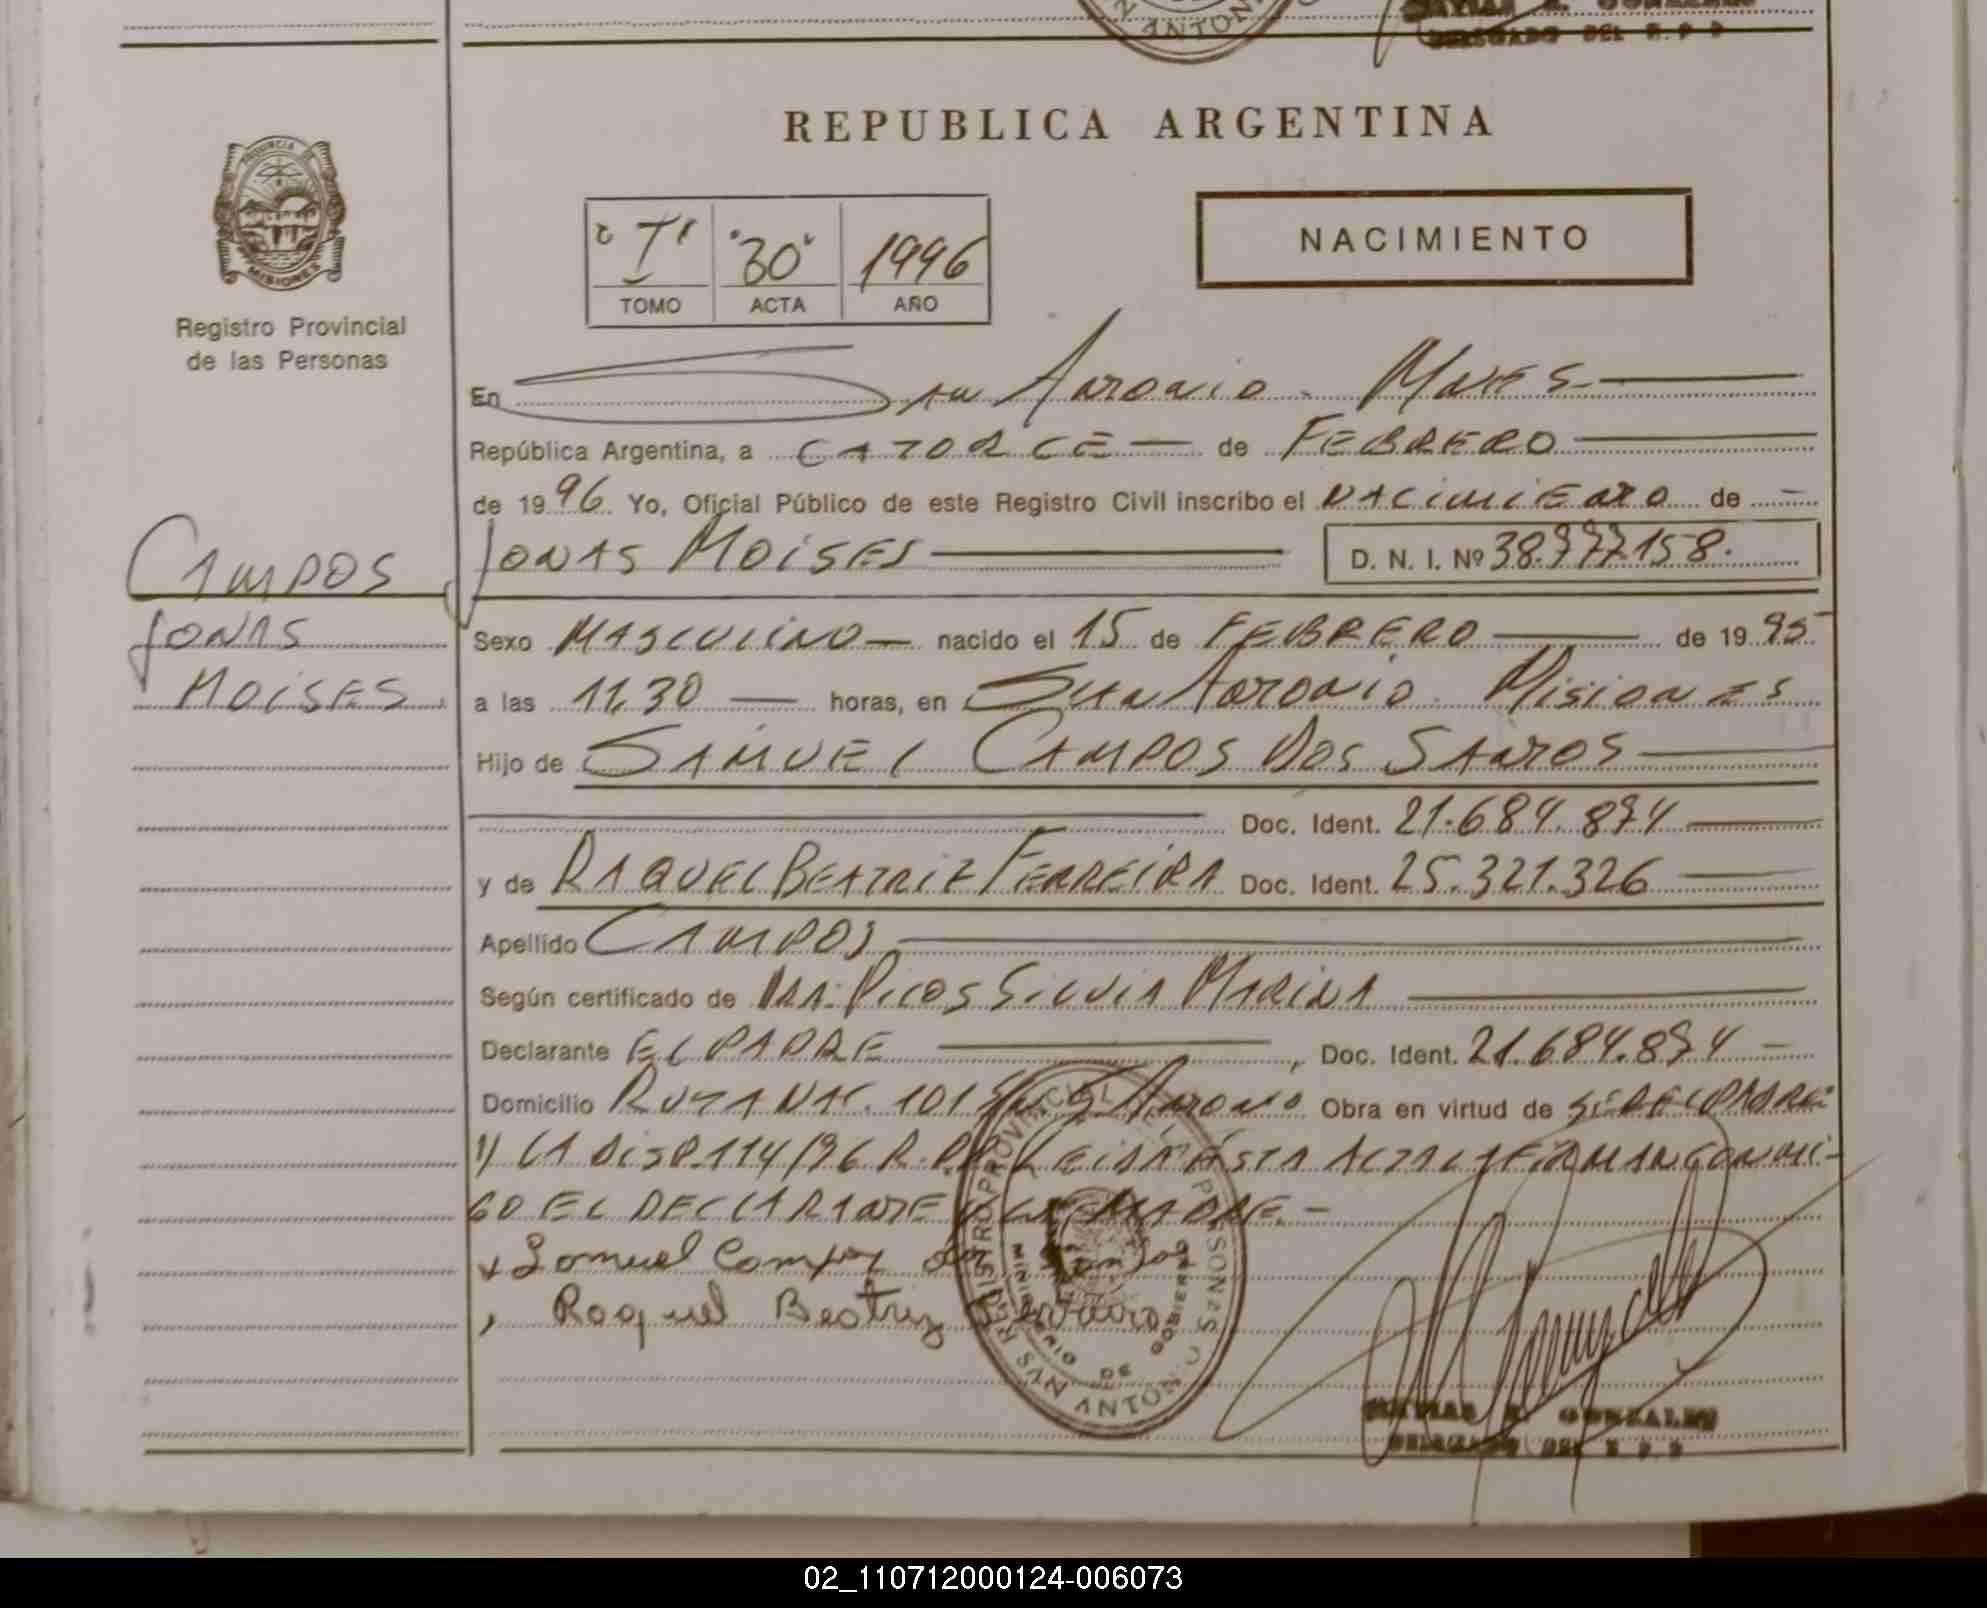 ANTONI
DELEGADO DEL R. P. P.
REPUBLICA ARGENTINA
PROVINCIA DE
MISIONES
Registro Provincial
de las Personas
"I" "30" 1996
TOMO ACTA AÑO
NACIMIENTO
En San Antonio. Mnes
República Argentina, a CATORCE de FEBRERO
de 1996. Yo, Oficial Público de este Registro Civil inscribo el NACIMIENTO de
JONAS MOISES D. N. I. Nº 38.777.158.
CAMPOS
JONAS
MOISES
Sexo MASCULINO nacido el 15 de FEBRERO de 1995
a las 11,30 horas, en San Antonio. Misiones
Hijo de SAMUEL CAMPOS DOS SANTOS
Doc. Ident. 21.684.874
y de RAQUEL BEATRIZ FERREIRA Doc. Ident. 25.321.326
Apellido CAMPOS
Según certificado de DRA. Picos SILVIA MARINA
Declarante EL PADRE, Doc. Ident. 21.684.874
Domicilio RUTA NAC. 101 San Antonio Obra en virtud de
LA DISP. 114/96 R.P.P. LEIDA ESTA ACTA LA FIRMAN CONMI-
GO EL DECLARANTE Y LA MADRE.-
x Samuel Campos dos Santos
Raquel Beatriz
REGISTRO PROVINCIAL DE LAS PERSONAS
MINISTERIO DE GOBIERNO
SAN ANTONIO
MATIAS R. GONZALEZ
DELEGADO DEL R. P. P.
02_110712000124-006073